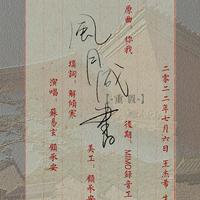 二零二二年七月六日 王杰希 生
後期：MIMO録音工
【·重置·】
原曲：你我
風月成書
填詞：解傾寒
美工：顧承
演唱 蘇易玄 顧承安